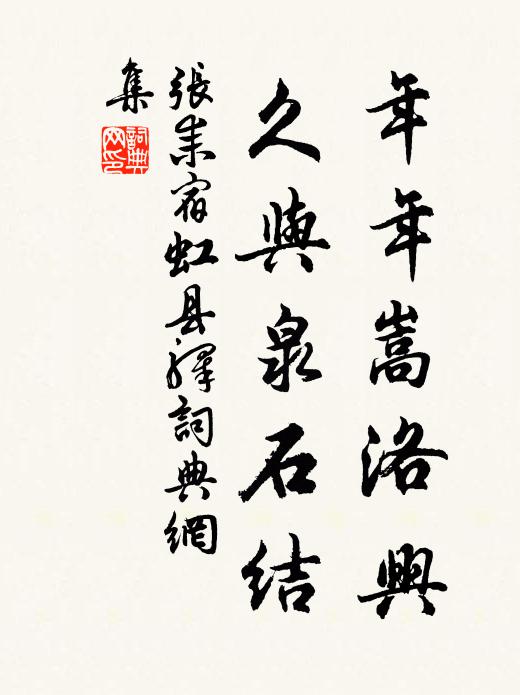 年年嵩洛興
久與泉石結
張耒宿虹县驛詞典網
集
詞典
网印